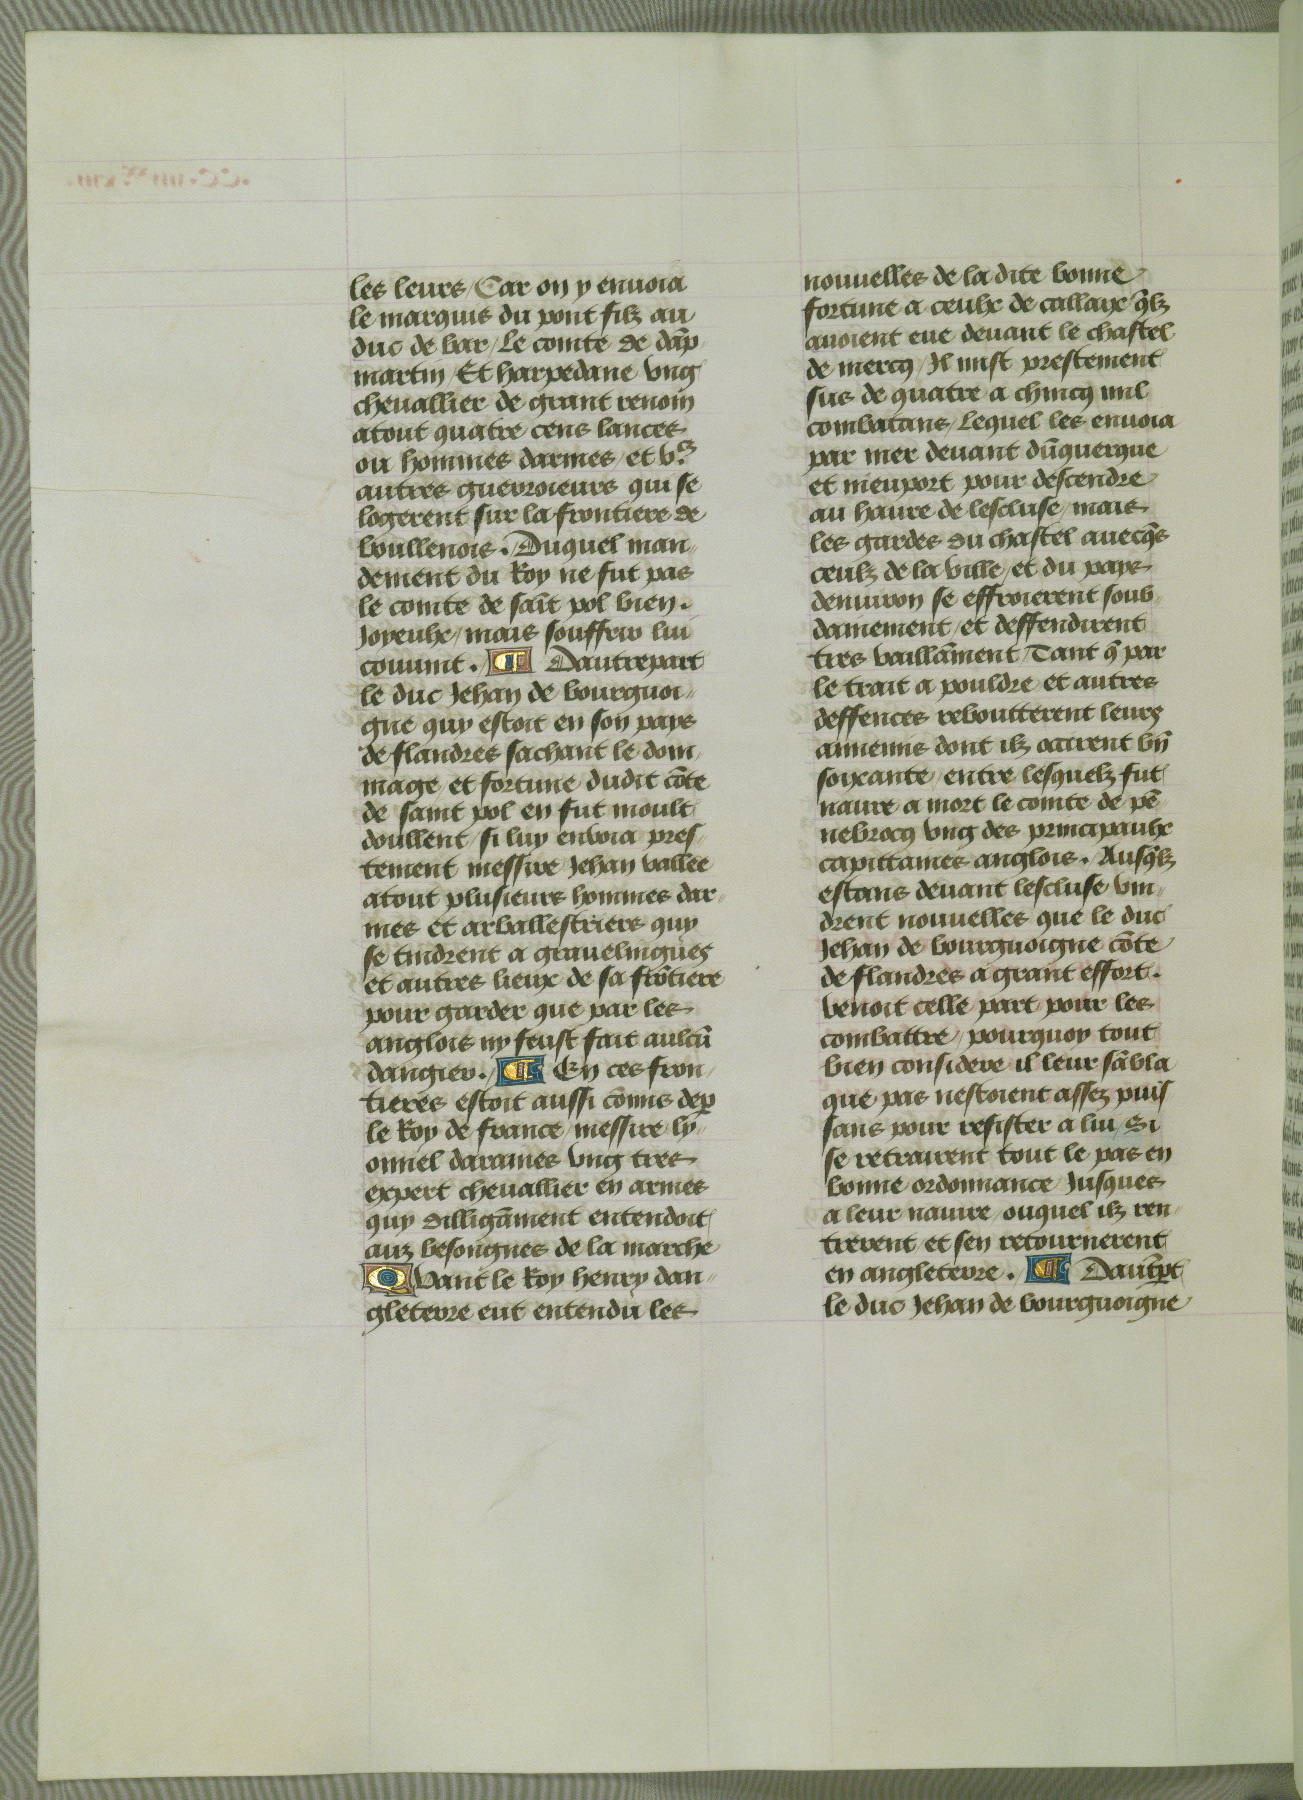 les leurs / Car on y enuoia
le marquis du pont filz au
duc de bar / Le comte de dāp
martin / Et harpedane vng
cheuallier de grant renom
atout quatre cens lances
ou hommes darmes / et vͨ
autres guerroieurs qui se
logerent sur la frontiere de
boullenois . Duquel man-
dement du Roy ne fut pas
le comte de sait̄ pol bien .
Joyeulx / mais souffrir lui
conuint . ¶ Dautrepart
le duc Jehan de bourguoi-
gne quy estoit en son pays
de flandres sachant le dom-
mage et fortune dudit cōte
de saint pol en fut moult
doullent / si luy enuoia pres-
tement messire Jehan vallee
atout plusieurs hommes dar-
mes et arballestriers quy
se tindrent a grauelingues
et autres lieux de sa frōtiere
pour garder que par les
anglois ny feust fait aulcū
dangier . ¶ En ces fron-
tieres estoit aussi cōmis dep̄
le Roy de france / messire ly-
onnel daraines vng tres
expert cheuallier en armes
quy dilligāment entendoit
aux besongnes de la marche
Quant le Roy henry dan-
gleterre eut entendu les
nouuelles de la dite bonne
fortune a ceulx de callaix q̄lz
auoient eue deuant le chastel
de mercq / Il mist prestement
sus de quatre a chincq mil
combatans / Lequel les enuoia
par mer deuant dūquerque
et nieuport pour descendre
au haure de lescluse / mais
les gardes du chastel auecq̄s
ceulz de la ville / et du pays
denuiron se effroierent soub-
dainement / et deffendirent
tres vaillāment / Tant q̄ par
le trait a pouldre et autres
deffences reboutterent leurs
annemis dont ilz occirent bn̄
soixante / entre lesquelz fut
naure a mort le comte de pē-
nebrocq vng des principaulx
capittaines anglois . Ausq̄lz
estans deuant lescluse vin-
drent nouuelles que le duc
Jehan de bourguoigne cōte
de flandres a grant effort .
venoit celle part pour les
combattre / pourquoy tout
bien considere il leur sābla
que pas nestoient assez puis
sans pour resister a lui / Si
se retrairent tout le pas en
bonne ordonnance Jusques
a leur nauire / ouquel ilz ren-
trerent et sen retournerent
en angleterre . ¶ Daut̄p̄t
le duc Jehan de bourguoigne